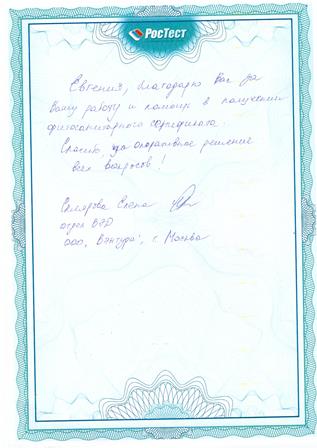 РосТест
Евгения, благодарю Вас за
Вашу работу и помощь в получении
фитосанитарного сертификата.
Спасибо за оперативное решение
всех вопросов!
Склярова Елена
отдел ВЭД
ООО "Вэнтура", г. Москва